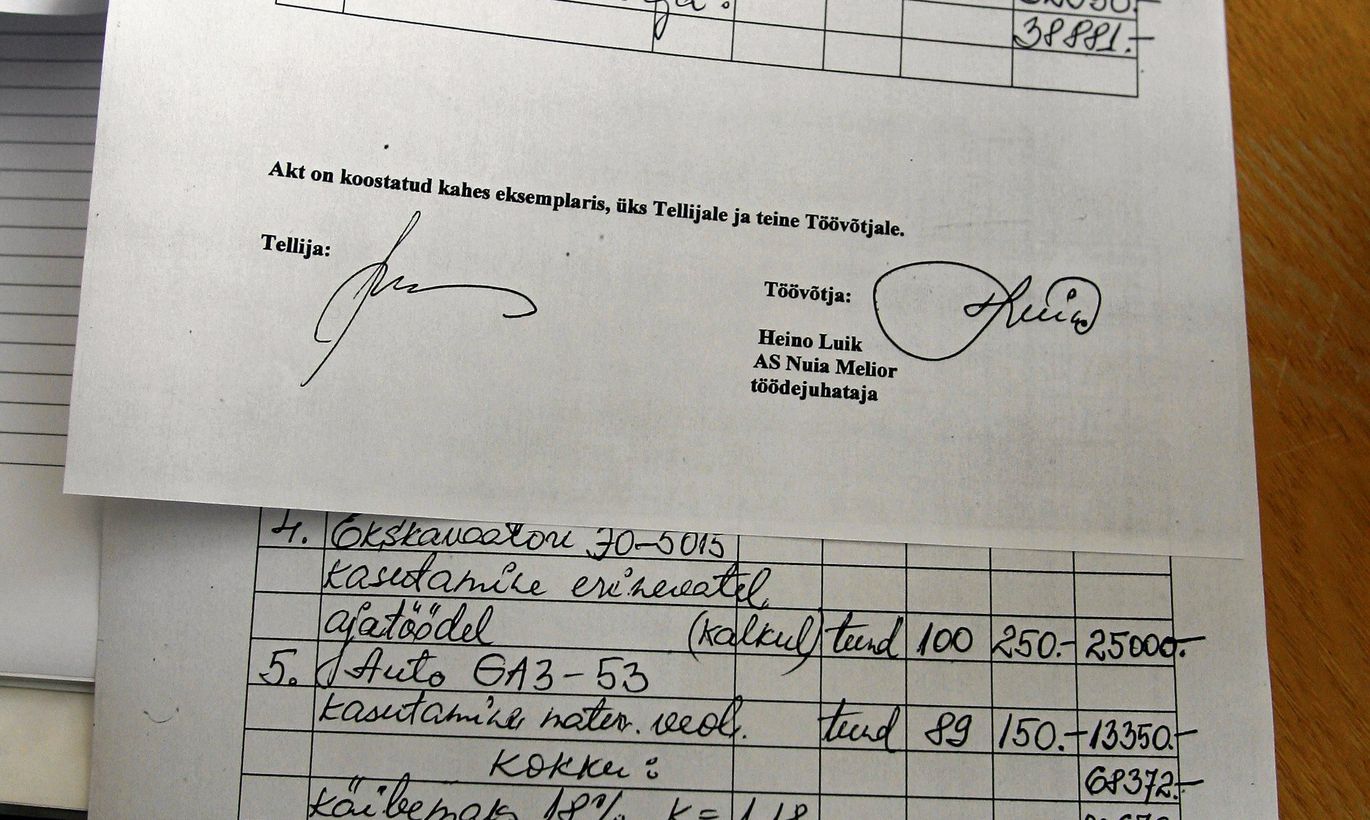 38881.-
Akt on koostatud kahes eksemplaris, üks Tellijale ja teine Töövõtjale.
Tellija:
Töövõtja:
Heino Luik
AS Nuia Melior
töödejuhataja
4. Ekskavaatori ЭО-5015
kasutamine erinevatel
ajatöödel (kalkul) tund 100 250.- 25000.-
5. Auto GAЗ-53
kasutamine mater. veol. tund 89 150.- 13350.-
Kokku: 68372.-
Käibemaks 18% K=1,18